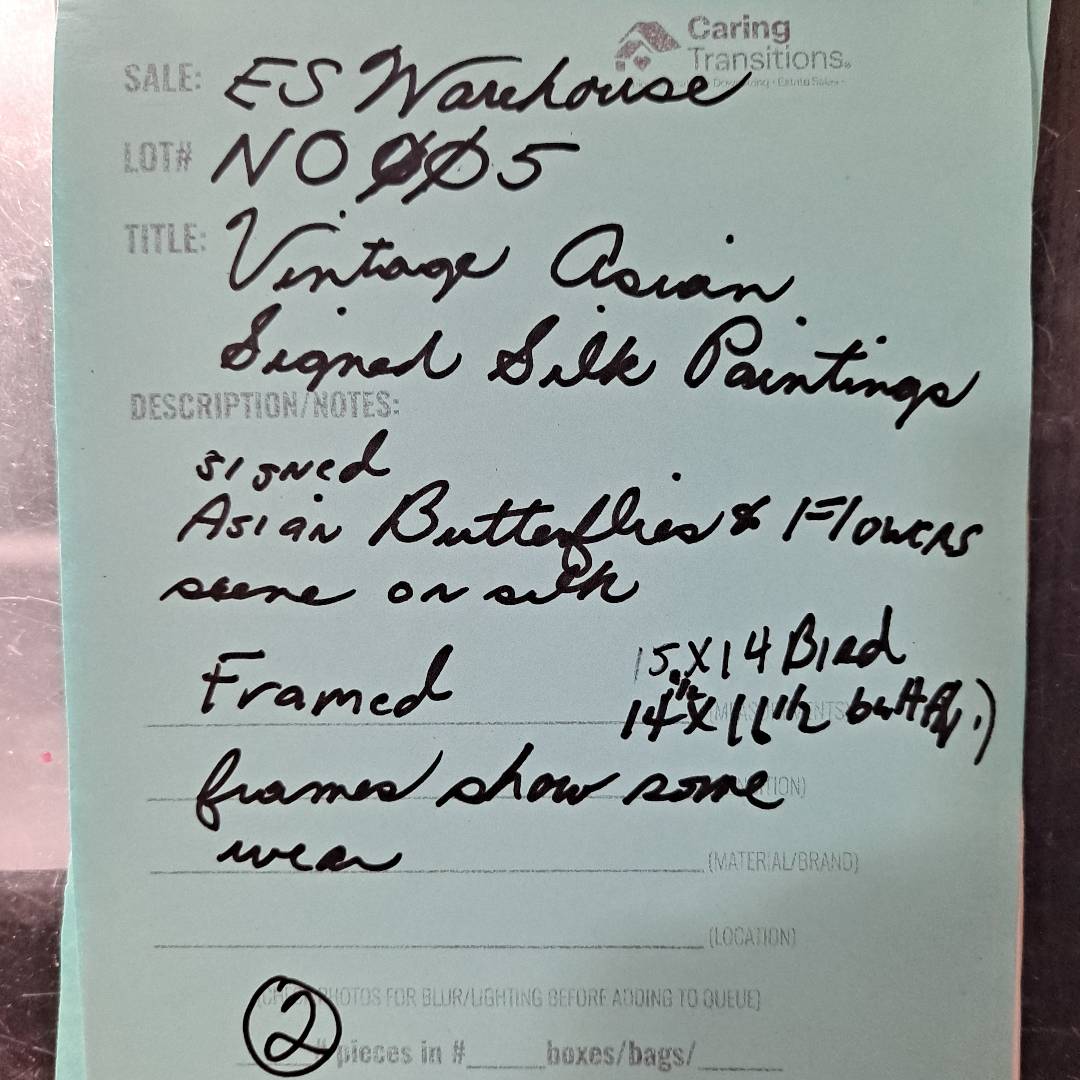 Caring
Transitions®
SALE: ES Warehouse
LOT# NO 005
TITLE: Vintage Asian
Signed Silk Paintings
DESCRIPTION/NOTES:
signed
Asian Butterflies & Flowers
scene on silk
Framed
15 X 14 Bird
14 1/2 X 11 1/2 buttfly.)
frames show some
wear
(MATERIAL/BRAND)
(LOCATION)
PHOTOS FOR BLUR/LIGHTING BEFORE ADDING TO QUEUE)
2 # pieces in #____ boxes/bags/____